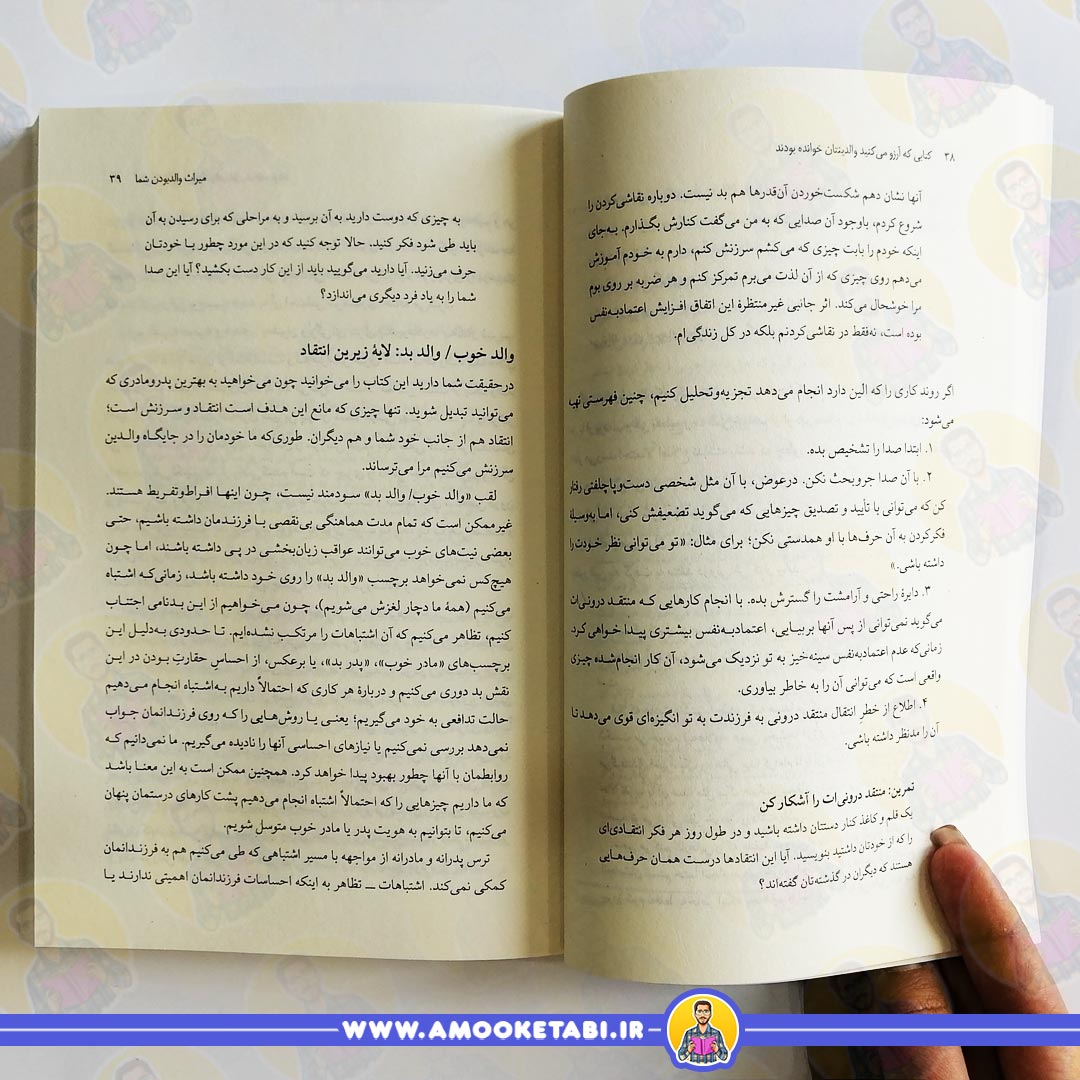 ۳۸ کتابی که آرزو می‌کنید والدینتان خوانده بودند
آنها نشان دهم شکست‌خوردن آن‌قدرها هم بد نیست. دوباره نقاشی‌کردن را
شروع کردم، باوجود آن صدایی که به من می‌گفت کنارش بگذارم. به‌جای
اینکه خودم را بابت چیزی که می‌کشم سرزنش کنم، دارم به خودم آموزش
می‌دهم روی چیزی که از آن لذت می‌برم تمرکز کنم و هر ضربه بر روی بوم
مرا خوشحال می‌کند. اثر جانبی غیرمنتظرهٔ این اتفاق افزایش اعتمادبه‌نفس
بوده است، نه‌فقط در نقاشی‌کردنم بلکه در کل زندگی‌ام.
اگر روند کاری را که الین دارد انجام می‌دهد تجزیه‌وتحلیل کنیم، چنین فهرستی تهیه
می‌شود:
۱. ابتدا صدا را تشخیص بده.
۲. با آن صدا جروبحث نکن. درعوض، با آن مثل شخصی دست‌وپاچلفتی رفتار
کن که می‌توانی با تأیید و تصدیق چیزهایی که می‌گوید تضعیفش کنی، اما به‌وسیلهٔ
فکرکردن به آن حرف‌ها با او همدستی نکن؛ برای مثال: «تو می‌توانی نظر خودت را
داشته باشی.»
۳. دایرهٔ راحتی و آرامشت را گسترش بده. با انجام کارهایی که منتقد درونی‌ات
می‌گوید نمی‌توانی از پس آنها بربیایی، اعتمادبه‌نفس بیشتری پیدا خواهی کرد.
زمانی‌که عدم اعتمادبه‌نفس سینه‌خیز به تو نزدیک می‌شود، آن کار انجام‌شده چیزی
واقعی است که می‌توانی آن را به خاطر بیاوری.
۴. اطلاع از خطرِ انتقال منتقد درونی به فرزندت به تو انگیزه‌ای قوی می‌دهد تا
آن را مدنظر داشته باشی.
تمرین: منتقد درونی‌ات را آشکار کن
یک قلم و کاغذ کنار دستتان داشته باشید و در طول روز هر فکر انتقادی‌ای
را که از خودتان داشتید بنویسید. آیا این انتقادها درست همان حرف‌هایی
هستند که دیگران در گذشته‌تان گفته‌اند؟
میراث والدبودن شما ۳۹
به چیزی که دوست دارید به آن برسید و به مراحلی که برای رسیدن به آن
باید طی شود فکر کنید. حالا توجه کنید که در این مورد چطور با خودتان
حرف می‌زنید. آیا دارید می‌گویید باید از این کار دست بکشید؟ آیا این صدا
شما را به یاد فرد دیگری می‌اندازد؟
والد خوب/ والد بد: لایهٔ زیرین انتقاد
درحقیقت شما دارید این کتاب را می‌خوانید چون می‌خواهید به بهترین پدرومادری که
می‌توانید تبدیل شوید. تنها چیزی که مانع این هدف است انتقاد و سرزنش است؛
انتقاد هم از جانب خود شما و هم دیگران. طوری‌که ما خودمان را در جایگاه والدین
سرزنش می‌کنیم مرا می‌ترساند.
لقب «والد خوب/ والد بد» سودمند نیست، چون اینها افراط‌وتفریط هستند.
غیرممکن است که تمام مدت هماهنگی بی‌نقصی با فرزندمان داشته باشیم، حتی
بعضی نیت‌های خوب می‌توانند عواقب زیان‌بخشی در پی داشته باشند، اما چون
هیچ‌کس نمی‌خواهد برچسب «والد بد» را روی خود داشته باشد، زمانی‌که اشتباه
می‌کنیم (همهٔ ما دچار لغزش می‌شویم)، چون می‌خواهیم از این بدنامی اجتناب
کنیم، تظاهر می‌کنیم که آن اشتباهات را مرتکب نشده‌ایم. تا حدودی به‌دلیل این
برچسب‌های «مادر خوب»، «پدر بد»، یا برعکس، از احساسِ حقارتِ بودن در این
نقش بد دوری می‌کنیم و دربارهٔ هر کاری که احتمالاً داریم به‌اشتباه انجام می‌دهیم
حالت تدافعی به خود می‌گیریم؛ یعنی یا روش‌هایی را که روی فرزندانمان جواب
نمی‌دهد بررسی نمی‌کنیم یا نیازهای احساسی آنها را نادیده می‌گیریم. ما نمی‌دانیم که
روابطمان با آنها چطور بهبود پیدا خواهد کرد. همچنین ممکن است به این معنا باشد
که ما داریم چیزهایی را که احتمالاً اشتباه انجام می‌دهیم پشت کارهای درستمان پنهان
می‌کنیم، تا بتوانیم به هویت پدر یا مادر خوب متوسل شویم.
ترس پدرانه و مادرانه از مواجهه با مسیر اشتباهی که طی می‌کنیم هم به فرزندانمان
کمکی نمی‌کند. اشتباهات ــ تظاهر به اینکه احساسات فرزندانمان اهمیتی ندارند یا
WWW.AMOOKETABI.IR